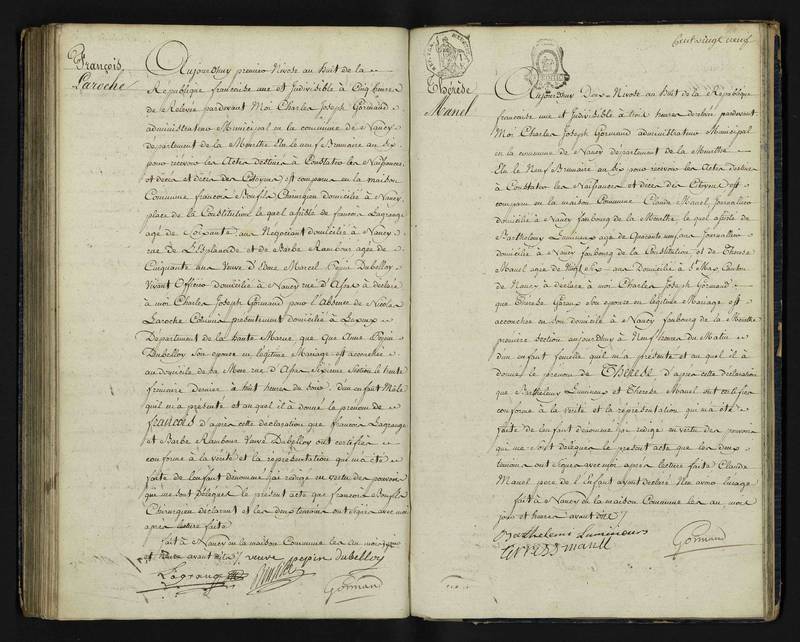 François
Laroche
Aujourdhuy premier Nivose an huit de la
République française une et Indivisible à Cinq heures
de Relevée pardevant Moi Charles Joseph Gormand
administrateur Municipal en la commune de Nancy
département de la Meurthe Elu le neuf Brumaire an six
pour recevoir les Actes destinés à Constater les Naissances
et décès des Citoyens est comparu en la maison
Commune françois Chirurgien domicilié à Nancy
place de la Constitution le quel assisté de francois Lagrange
agé de Soixante ans Negociant domicilié à Nancy
rue de L'Esplanade et de Barbe Rambour agée de
Cinquante ans Veuve Marcel Pepin Dubelloy
Vivant Officier Domiciliée à Nancy rue a déclaré
à moi Charles Joseph Gormand pour l'Absence de Nicolas
Laroche présentement domicilié à
Département de la haute Marne que Anne Pepin
Dubelloy Son épouse en legitime Mariage est accouchée
au domicile de sa Mere rue Sixieme Section le trente
frimaire dernier à huit heures du Soir d'un enfant Mâle
qu'il m'a présenté et au quel il à donné le prenom de
françois d'apres cette déclaration que francois Lagrange
et Barbe Rambour Veuve Dubelloy ont certifiée
conforme à la vérité et la représentation qui m'a été
faite de l'enfant dénommé j'ai redigé en vertu des pouvoirs
qui me sont délégués le présent acte que françois
Chirurgien declarant et les deux temoins ont signés avec moi
après lecture faite
fait à Nancy en la maison Commune les an mois jour
et heure avant dits veuve pepin dubelloy
Lagrange
Gormand
Cent vingt neuf
Thérèse
Manel
Aujourdhuy Deux Nivose an huit de la République
francaise une et Indivisible à trois heures de relevée pardevant
Moi Charles Joseph Gormand administrateur Municipal
en la commune de Nancy departement de la Meurthe
Elu le Neuf Brumaire an Six pour recevoir les Actes destinés
à Constater les Naissances et décès des Citoyens est
comparu en la maison Commune Claude Manel Journallier
domicilié à Nancy faubourg de la Meurthe le quel assisté de
Barthelemy Lumineux agé de Quarante ans Journallier
domicilié à Nancy faubourg de la Constitution et de Therese
Manel agée de ans Domiciliée à Canton
de Nancy à déclaré à moi Charles Joseph Gormand
que Thérèse son épouse en légitime Mariage est
accouchée en son domicile à Nancy faubourg de la Meurthe
premiere section aujourdhuy à Neuf heures du Matin
d'un enfant femelle qu'il m'a présenté et au quel il à
donné le prenom de Thérese d'après cette déclaration
que Barthelemy Lumineux et Therese Manel ont certifiée
conforme à la vérité et la représentation qui m'a été
faite de l'enfant dénommé j'ai redigé en vertu des pouvoirs
qui me sont délégués le présent acte que les deux
temoins ont signé avec moi après lecture faite Claude
Manel pere de l'Enfant ayant declaré N'en avoir l'usage
fait à Nancy en la maison Commune les an mois
jour et heure avant dits
Barthelemi
Gormand